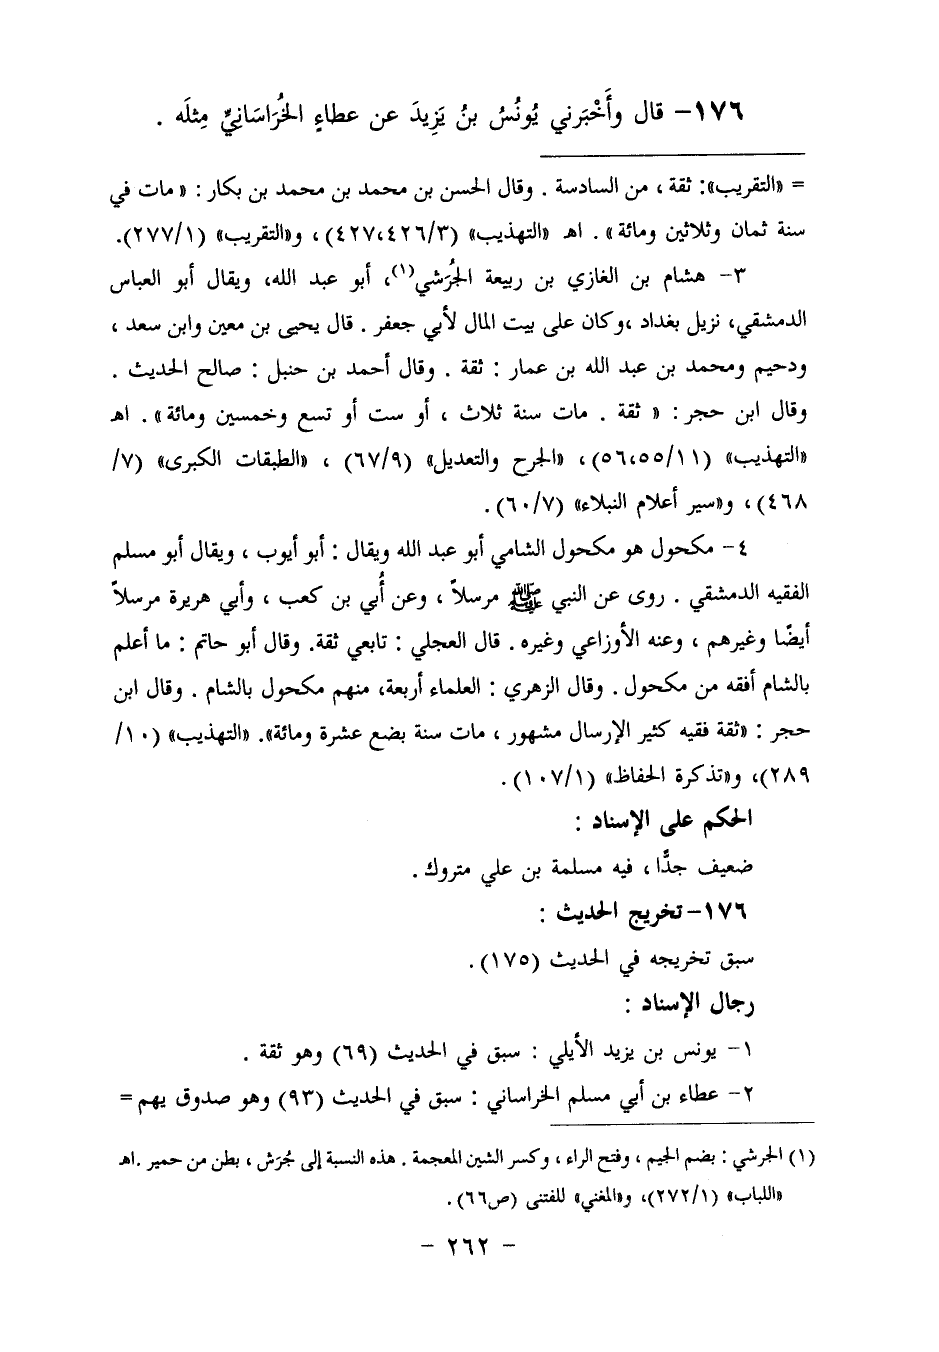 ١٧٦- قال وأَخْبَرني يُونُسُ بنُ يَزِيدَ عن عطاءٍ الخُرَاسَانِيِّ مِثلَه .
= «التقريب»: ثقة ، من السادسة . وقال الحسن بن محمد بن محمد بن بكار : « مات في
سنة ثمان وثلاثين ومائة » . اهـ «التهذيب» (٤٢٧،٤٢٦/٣) ، و«التقريب» (٢٧٧/١).
٣- هشام بن الغازي بن ربيعة الجُرَشي(١)، أبو عبد الله، ويقال أبو العباس
الدمشقي، نزيل بغداد ،وكان على بيت المال لأبي جعفر . قال يحيى بن معين وابن سعد ،
ودحيم ومحمد بن عبد الله بن عمار : ثقة . وقال أحمد بن حنبل : صالح الحديث .
وقال ابن حجر : « ثقة . مات سنة ثلاث ، أو ست أو تسع وخمسين ومائة » . اهـ
«التهذيب» (٥٦،٥٥/١١) ، «الجرح والتعديل» (٦٧/٩) ، «الطبقات الكبرى» (٧/
٤٦٨) ، و«سير أعلام النبلاء» (٦٠/٧) .
٤- مكحول هو مكحول الشامي أبو عبد الله ويقال : أبو أيوب ، ويقال أبو مسلم
الفقيه الدمشقي . روى عن النبي ﷺ مرسلاً ، وعن أُبي بن كعب ، وأبي هريرة مرسلاً
أيضًا وغيرهم ، وعنه الأوزاعي وغيره . قال العجلي : تابعي ثقة. وقال أبو حاتم : ما أعلم
بالشام أفقه من مكحول . وقال الزهري : العلماء أربعة، منهم مكحول بالشام . وقال ابن
حجر : «ثقة فقيه كثير الإرسال مشهور ، مات سنة بضع عشرة ومائة». «التهذيب» (١٠/
٢٨٩)، و«تذكرة الحفاظ» (١٠٧/١) .
الحكم على الإسناد :
ضعيف جدًّا ، فيه مسلمة بن علي متروك .
١٧٦- تخريج الحديث :
سبق تخريجه في الحديث (١٧٥) .
رجال الإسناد :
١- يونس بن يزيد الأيلي : سبق في الحديث (٦٩) وهو ثقة .
٢- عطاء بن أبي مسلم الخراساني : سبق في الحديث (٩٣) وهو صدوق يهم=
(١) الجرشي : بضم الجيم ، وفتح الراء ، وكسر الشين المعجمة . هذه النسبة إلى جُرَش ، بطن من حمير .اهـ
«اللباب» (٢٧٢/١)، و«المغني» للفتنى (ص٦٦) .
- ٢٦٢ -